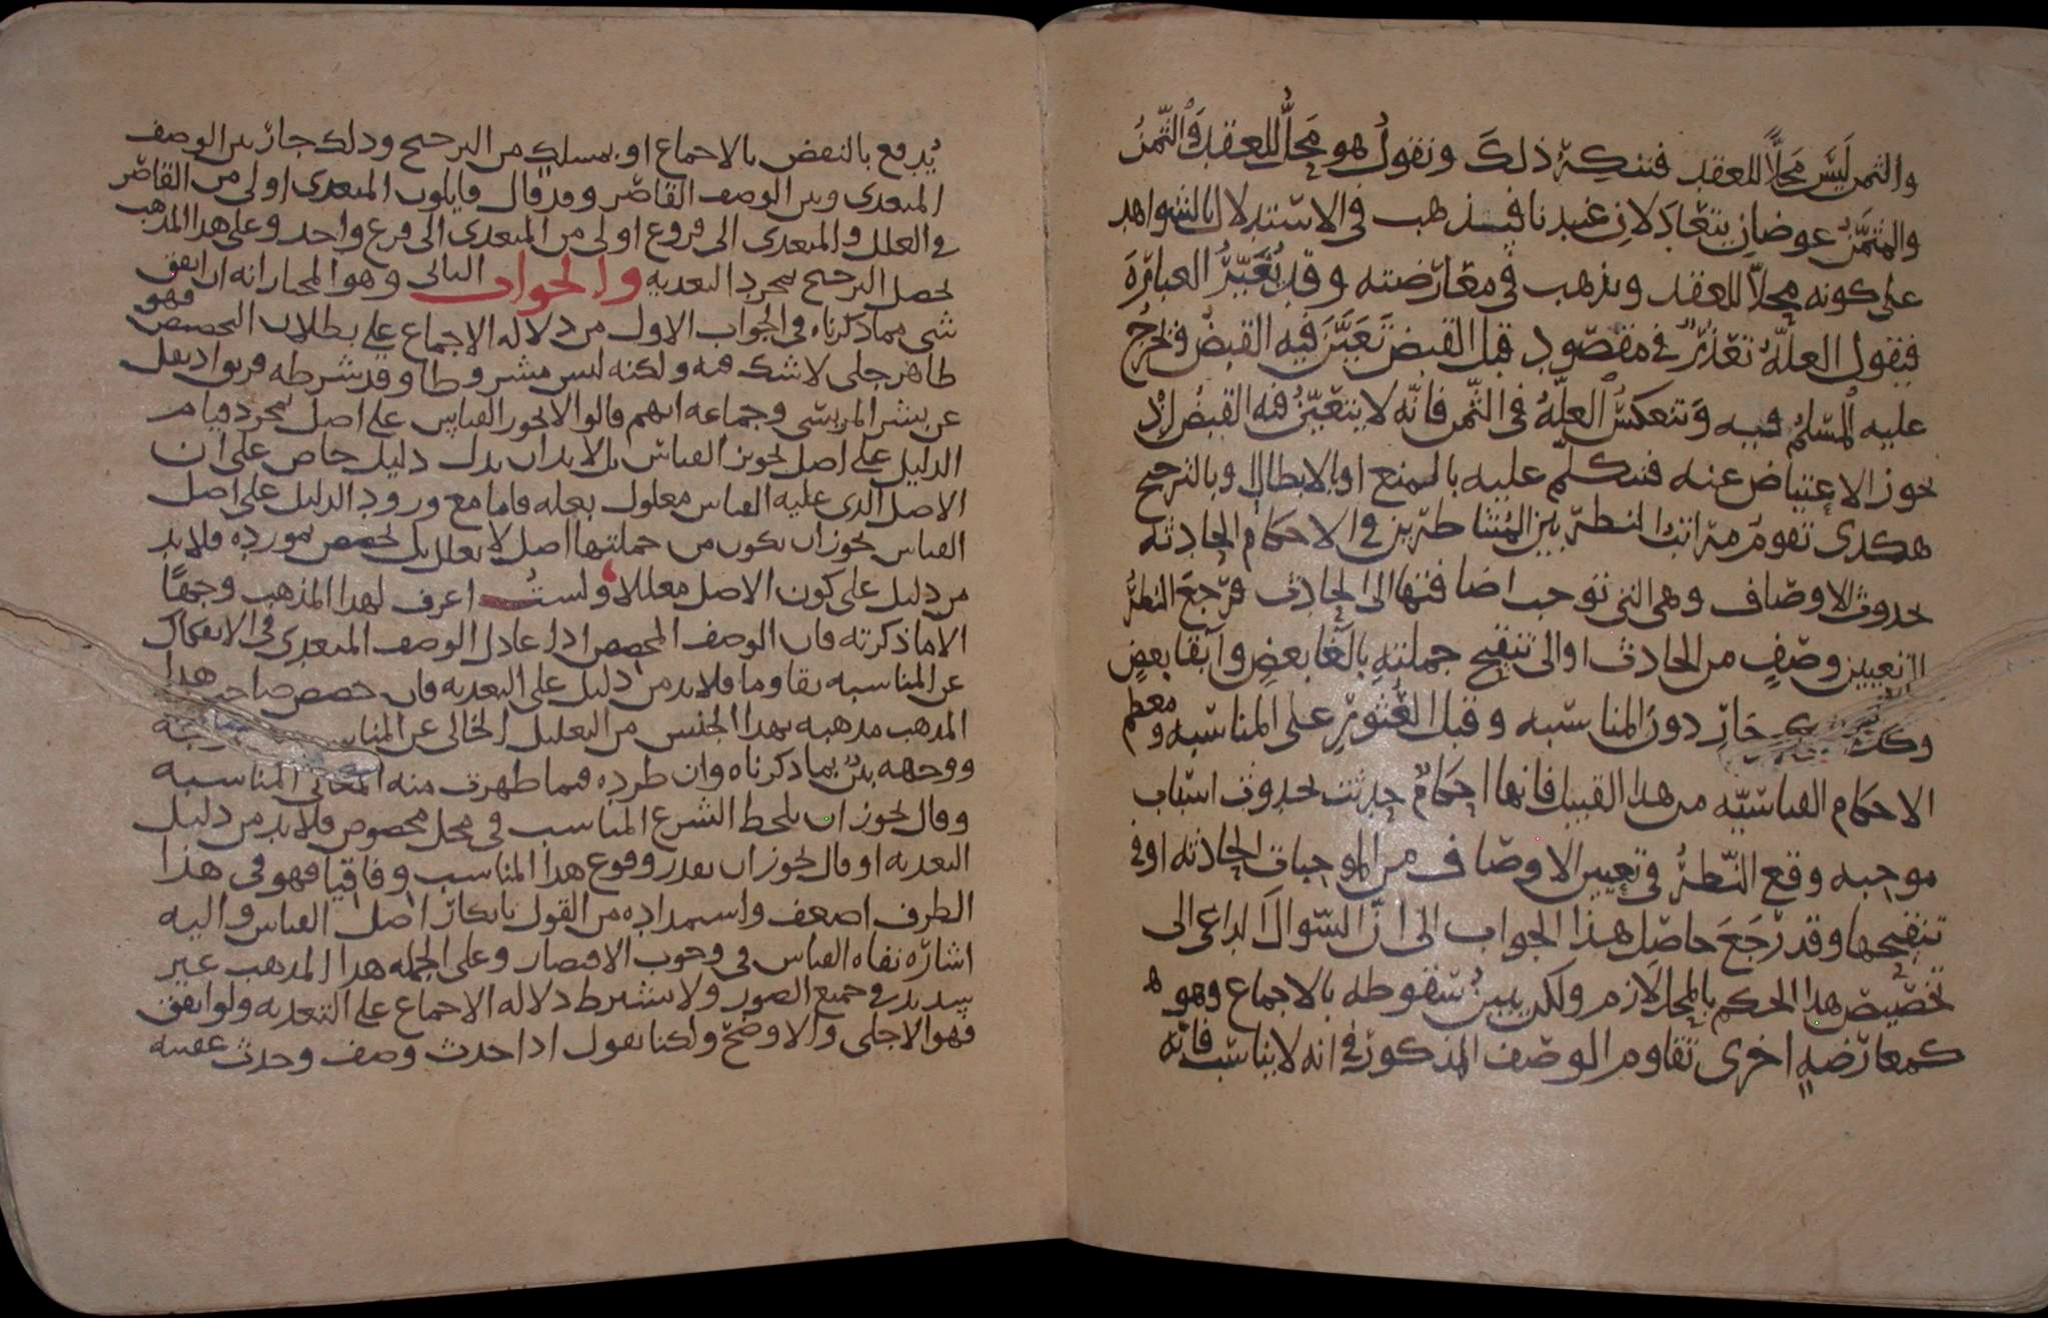 والثمن ليس محلًّا للعقد فننكر ذلك ونقول هو محلٌّ للعقد والثمن
والمثمن عوضان يتعادلان عندنا فيذهب في الاستدلال بالشواهد
على كونه محلًّا للعقد ويذهب في معارضته وقد تُغَيَّرُ العبارة
فيقول العلّة تعذّر في مقصود قبل القبض تعيّن فيه القبض فخرج
عليه المسلم فيه وتنعكس العلّة في الثمن فانّه لا يتعيّن فيه القبض اذ
يجوز الاعتياض عنه فنتكلم عليه بالمنع او بالابطال وبالترجيح
هكذى تقوم مراتب النظر بين المتناظرين في الاحكام الحادثة
بحدوث الاوصاف وهي التي توجب اضافتها الى الحادث فرجع النظر
الى تعيين وصفٍ من الحادث او الى تنقيح جملته بالغا بعضٍ وابقا بعضٍ
وكل ذلك جارٍ دون المناسبه وقبل العثور على المناسبه ومعظم
الاحكام القياسيّه من هذا القبيل فانها احكامٌ حدثت بحدوث اسباب
موجبه وقع النّظر في تعيين الاوصاف من الموجبات الحادثه او في
تنقيحها وقد رجع حاصل هذا الجواب الى انّ السّوال الداعى الى
تخصيص هذا الحكم بالمحل لازم ولكن يبين سقوطه بالاجماع وهو
كمعارضةٍ اخرى تقاوم الوصف المذكور في انه لا يناسب فانّه
يُدفع بالنقض بالاجماع او بمسلكٍ من الترجيح وذلك جارٍ بين الوصف
المتعدى وبين الوصف القاصر وقد قال قايلون المتعدى اولى من القاصر
في العلل والمتعدى الى فروع اولى من المتعدى الى فرع واحد وعلى هذا المذهب
يحصل الترجيح بمجرد التعديه والجواب الثانى وهو المختار انه ان اتفق
شى مما ذكرناه في الجواب الاول من دلاله الاجماع على بطلان التخصيص فهو
ظاهر جلى لا شك فيه ولكنه ليس مشروطا وقد شرطه فريق اذ نقل
عن بشر المريسى وجماعه انهم قالوا لا يجوز القياس على اصل بمجرد قيام
الدليل على اصل تجويز القياس بل لا بد ان يدل دليل خاص على ان
الاصل الذى عليه القياس معلول بعله فاما مع ورود الدليل على اصل
القياس يجوز ان يكون من جملتها اصل لا يعلل بل يخصص بمورده فلا بد
من دليل على كون الاصل معللا ولست اعرف لهذا المذهب وجهًا
الا ما ذكرته فان الوصف المخصص اذا عادل الوصف المتعدى في الانفكاك
عن المناسبه تقاوما فلا بد من دليل على التعديه فان خصص صاحب هذا
المذهب مذهبه بهذا الجنس من التعليل الخالى عن
ووجهه بيّن بما ذكرناه وان طرده فيما ظهرت منه المعانى المناسبه
وقال يجوز ان يلحظ الشرع المناسب في محل مخصوص فلا بد من دليل
التعديه او قال يجوز ان يقدر وقوع هذا المناسب وفاقيا فهو في هذا
الطرف اضعف واستمداده من القول بانكار اصل القياس واليه
اشارة نفاه القياس في وجوب الاقتصار وعلى الجمله هذا المذهب غير
سديد في جميع الصور ولا يشترط دلاله الاجماع على التعديه ولو اتفق
فهو الاجلى والاوضح ولكنا نقول اذا حدث وصف وحدث عقيبه